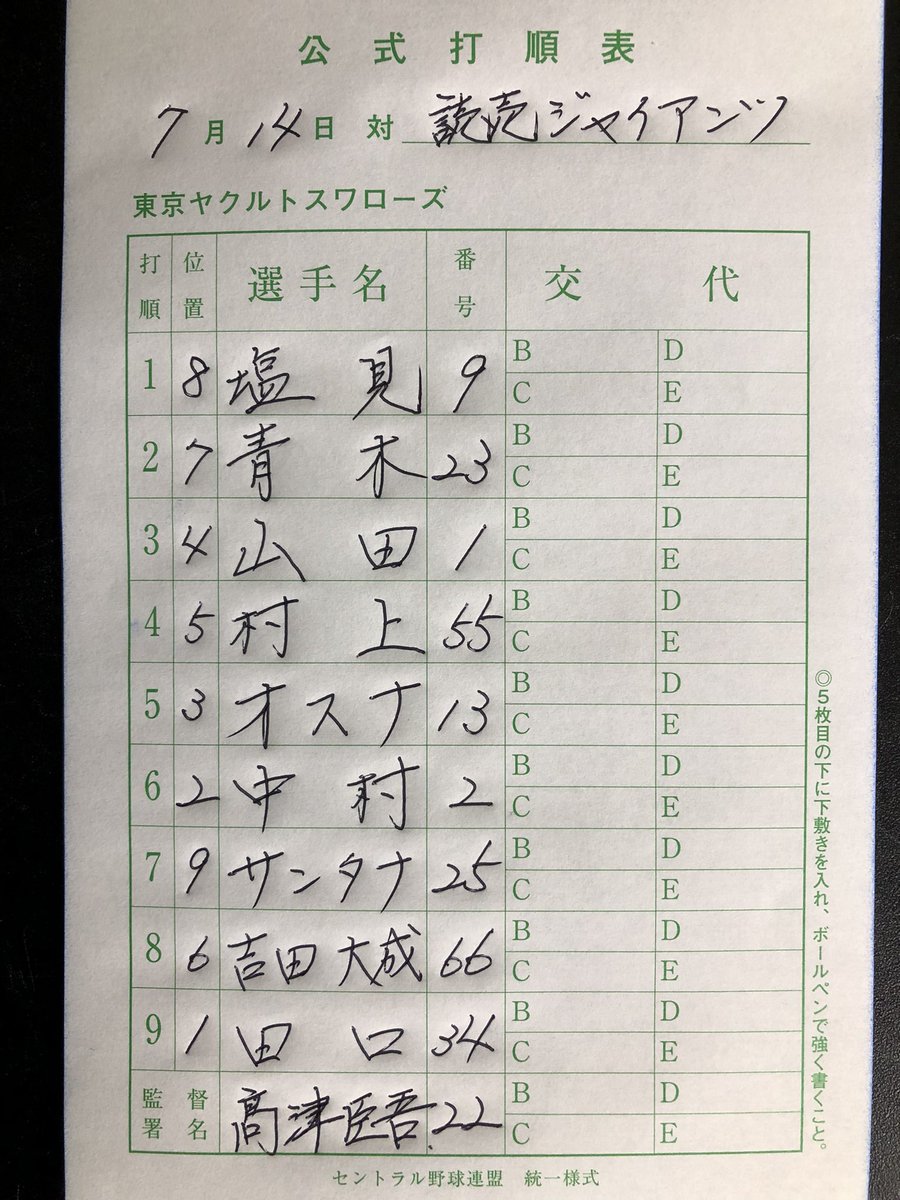 公式打順表
7月14日 対 読売ジャイアンツ
東京ヤクルトスワローズ
打順 位置 選手名 番号 交代
1 8 塩見 9 B D C E
2 7 青木 23 B D C E
3 4 山田 1 B D C E
4 5 村上 55 B D C E
5 3 オスナ 13 B D C E
6 2 中村 2 B D C E
7 9 サンタナ 25 B D C E
8 6 吉田大成 66 B D C E
9 1 田口 34 B D C E
監督署名 髙津臣吾 22 B D C E
◎5枚目の下に下敷きを入れ、ボールペンで強く書くこと。
セントラル野球連盟 統一様式